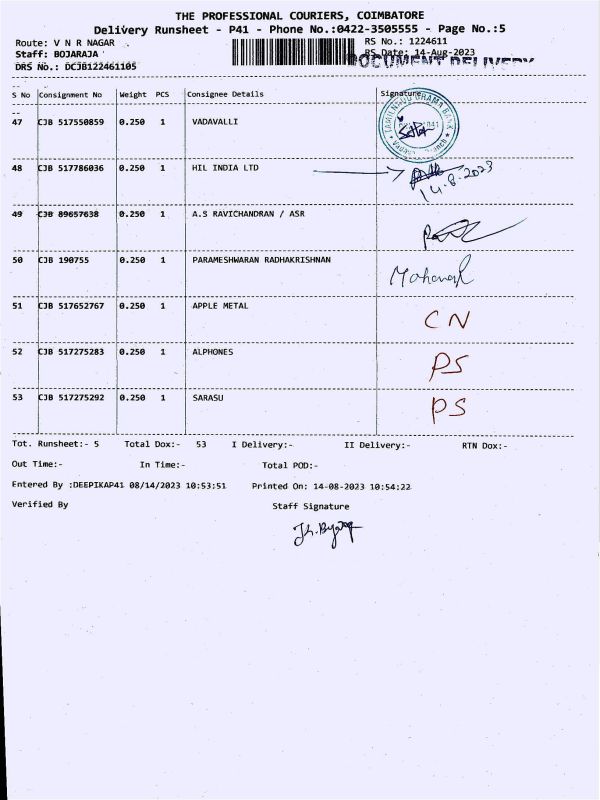 THE PROFESSIONAL COURIERS, COIMBATORE
Delivery Runsheet - P41 - Phone No.:0422-3505555 - Page No.:5
Route: V N R NAGAR RS No.: 1224611
Staff: BOJARAJA RS Date: 14-Aug-2023
DRS No.: DCJB122461105 DOCUMENT DELIVERY
S No Consignment No Weight PCS Consignee Details Signature
47 CJB 517550859 0.250 1 VADAVALLI
TAMILNADU GRAMA BANK
48 CJB 517786036 0.250 1 HIL INDIA LTD
14.8.2023
49 CJB 89657638 0.250 1 A.S RAVICHANDRAN / ASR
50 CJB 190755 0.250 1 PARAMESHWARAN RADHAKRISHNAN
51 CJB 517652767 0.250 1 APPLE METAL CN
52 CJB 517275283 0.250 1 ALPHONES PS
53 CJB 517275292 0.250 1 SARASU PS
Tot. Runsheet:- 5 Total Dox:- 53 I Delivery:- II Delivery:- RTN Dox:-
Out Time:- In Time:- Total POD:-
Entered By :DEEPIKAP41 08/14/2023 10:53:51 Printed On: 14-08-2023 10:54:22
Verified By Staff Signature